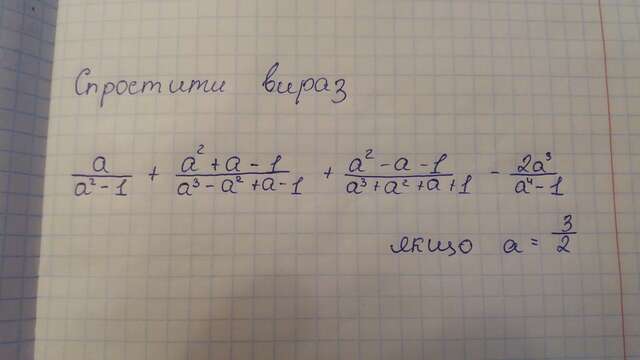 Спростити вираз
a/(a² - 1) + (a² + a - 1)/(a³ - a² + a - 1) + (a² - a - 1)/(a³ + a² + a + 1) - 2a³/(a⁴ - 1)
якщо a = 3/2